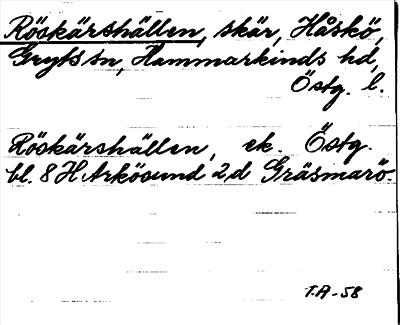 Röskärshällen, skär, Håskö,
Gryts sn, Hammarkinds hd,
Östg. l.
Röskärshällen, ek. Östg.
bl. 8 H Arkösund 2,d Gräsmarö.
T.A-58